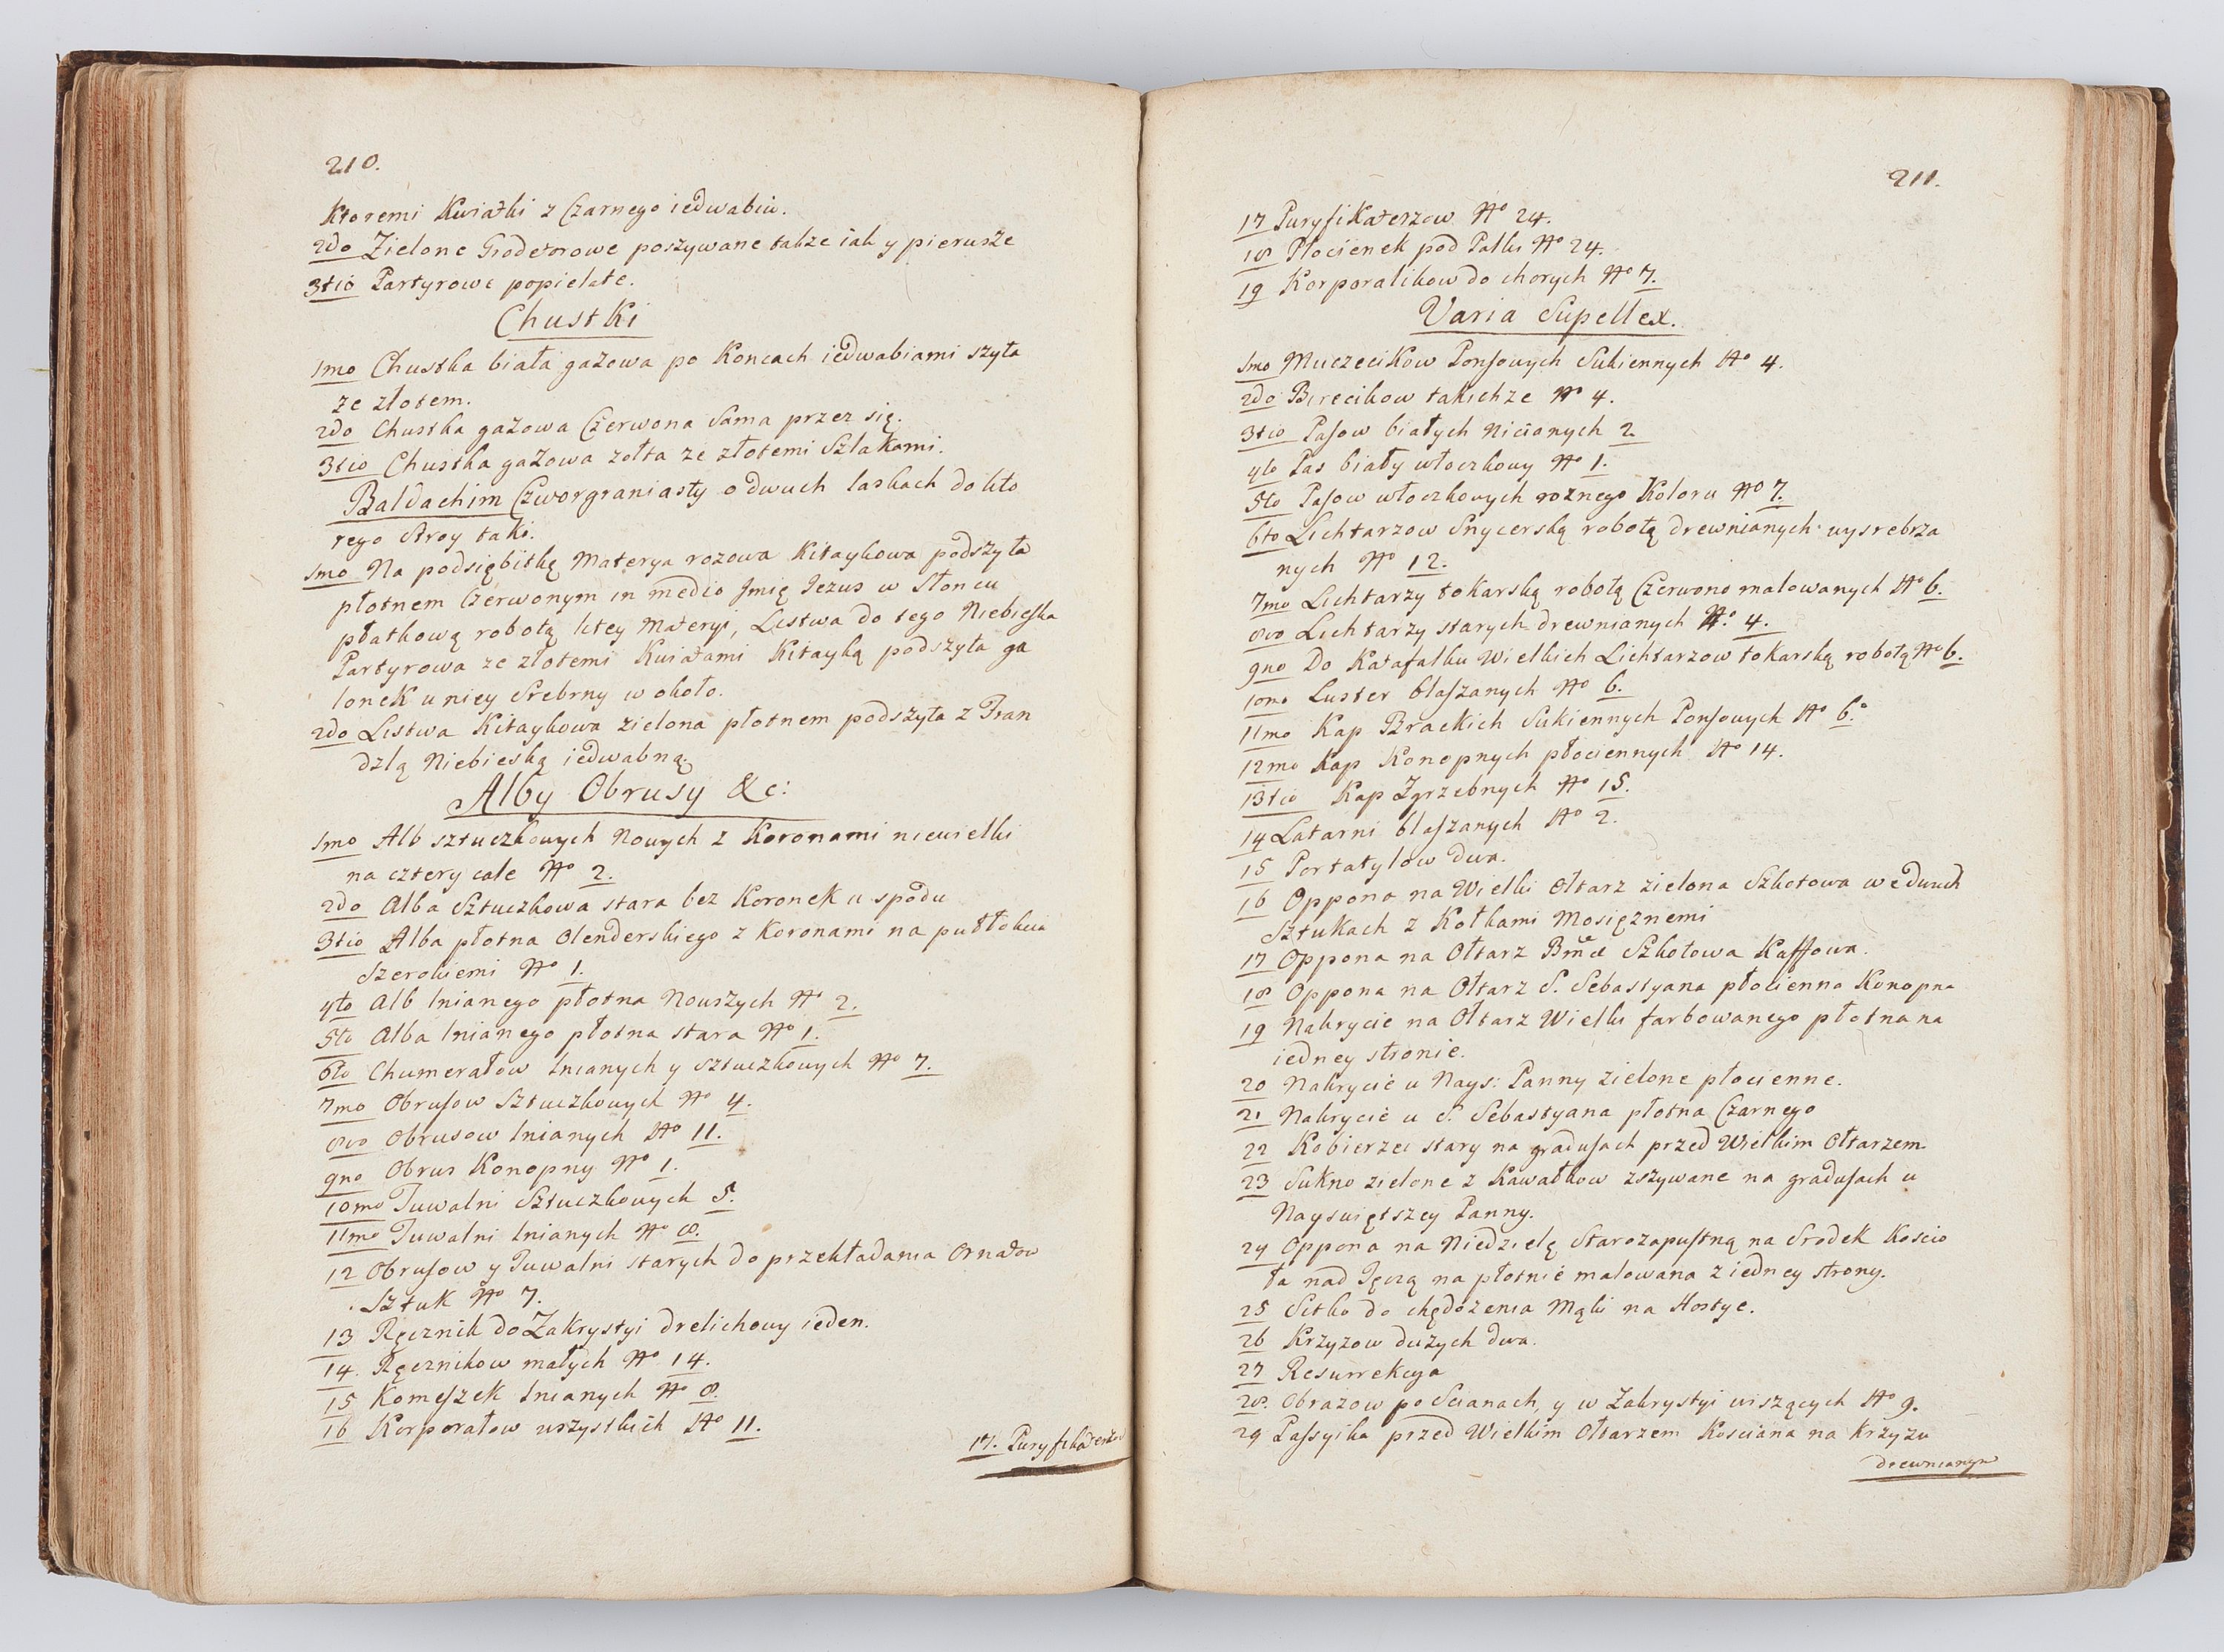 210.
Ktoremi Kwiatki z Czarnego iedwabiu.
2do Zielone Grodetorowe poszywane także iak y pierusze
3tio Partyrowe popielate.
Chustki
1mo Chustka biała gazowa po Koncach iedwabiami szyta
ze złotem.
2do Chustka gazowa Czerwona Sama przez się.
3tio Chustka gazowa zołta ze złotemi Szlakami.
Baldachim Czworgraniasty o dwuch laskach do kto
rego Stroy taki.
1mo Na podsiębitkę Materya rozowa Kitaykowa podszyta
płotnem Czerwonym in medio Jmię Jezus w Słoncu
płatkową robotą litey Materyi, Listwa do tego Niebieska
Partyrowa ze złotemi Kwiatami Kitayką podszyta ga
lonek u niey Srebrny w około.
2do Listwa Kitaykowa zielona płotnem podszyta z Fran
dzlą Niebieską iedwabną.
Alby Obrusy &c:
1mo Alb sztuczkowych Nowych z Koronami niewielki
na cztery cale No 2.
2do Alba Sztuczkowa stara bez Koronek u spodu
3tio Alba płotna Olenderskiego z Koronami na pułłokcia
Szerokiemi No 1.
4to Alb lnianego płotna Nouszych No 2.
5to Alba lnianego płotna stara No 1.
6to Chumerałow lnianych y sztuczkowych No 7.
7mo Obrusow Sztuczkowych No 4.
8vo Obrusow lnianych No 11.
9no Obrus Konopny No 1.
10mo Tuwalni Sztuczkowych 5.
11mo Tuwalni lnianych No 8.
12 Obrusow y Tuwalni starych do przekładania Ornatow
Sztuk No 7.
13 Ręcznik do Zakrystyi drelichowy ieden.
14. Ręcznikow małych No 14.
15 Komeszek lnianych No 8.
16 Korporałow wszystkich No 11.
17. Puryfikaterzow
211.
17 Puryfikaterzow No 24.
18 Płocienek pod Palki No 24.
19 Korporalikow do chorych No 7.
Varia Supellex.
1mo Muczecikow Ponsowych Sukiennych No 4.
2do Birecikow takichze No 4.
3tio Pasow białych Nicianych 2
4to Pas biały włoczkowy No 1.
5to Pasow włoczkowych roznego Koloru No 7.
6to Lichtarzow Snycerską robotą drewnianych wysrebrza
nych No 12.
7mo Lichtarzy tokarską robotą Czerwono malowanych No 6.
8vo Lichtarzy starych drewnianych No 4.
9no Do Katafalku Wielkich Lichtarzow tokarską robotą No 6.
10mo Luster blaszanych No 6.
11mo Kap Brackich Sukiennych Ponsowych No 6.
12mo Kap Konopnych płociennych No 14.
13tio Kap Zgrzebnych No 15.
14 Latarni blaszanych No 2.
15 Portatylow dwa.
16 Oppona na Wielki Ołtarz zielona Szkotowa we dwuch
Sztukach z Kołkami Mosięznemi
17 Oppona na Ołtarz Bmæ Szkotowa Kaffowa.
18 Oppona na Ołtarz S. Sebastyana płocienna Konopna
19 Nakrycie na Ołtarz Wielki farbowanego płotna na
iedney stronie.
20 Nakrycie u Nays: Panny zielone płocienne.
21 Nakrycie u S. Sebastyana płotna Czarnego
22 Kobierzec stary na gradusach przed Wielkim Ołtarzem
23 Sukno zielone z Kawałkow zszywane na gradusach u
Nayswiętszey Panny.
24 Oppona na Niedzielę Starozapustną na Srodek Koscio
ła nad Tęczą na płotnie malowana z iedney strony.
25 Sitko do chędozenia Mąki na Hostye.
26 Krzyzow duzych dwa.
27 Resurrekcya
28. Obrazow po Scianach, y w Zakrystyi wiszących No 9.
29 Passyika przed Wielkim Ołtarzem Kosciana na Krzyzu
drewnianym